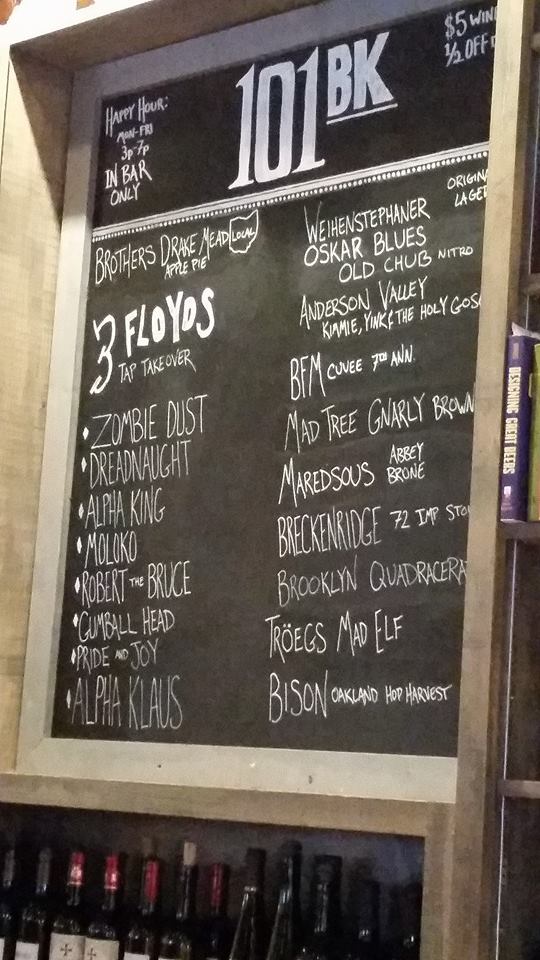 HAPPY HOUR:
MON-FRI
3P-7P
IN BAR
ONLY
101 BK
$5 WIN
1/2 OFF
BROTHERS DRAKE MEAD LOCAL
APPLE PIE
3 FLOYDS
TAP TAKEOVER
ZOMBIE DUST
DREADNAUGHT
ALPHA KING
MOLOKO
ROBERT THE BRUCE
GUMBALL HEAD
PRIDE AND JOY
ALPHA KLAUS
WEIHENSTEPHANER ORIGINA
LAGER
OSKAR BLUES
OLD CHUB NITRO
ANDERSON VALLEY
KIMMIE, YINK & THE HOLY GOS
BFM CUVEE 7TH ANN.
MAD TREE GNARLY BROWN
MAREDSOUS ABBEY
BRONE
BRECKENRIDGE 72 IMP STO
BROOKLYN QUADRACERA
TRÖEGS MAD ELF
BISON OAKLAND HOP HARVEST
DESIGNING GREAT BEERS